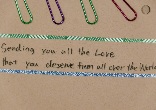 Sending you all the Love
that you deserve from all over the World